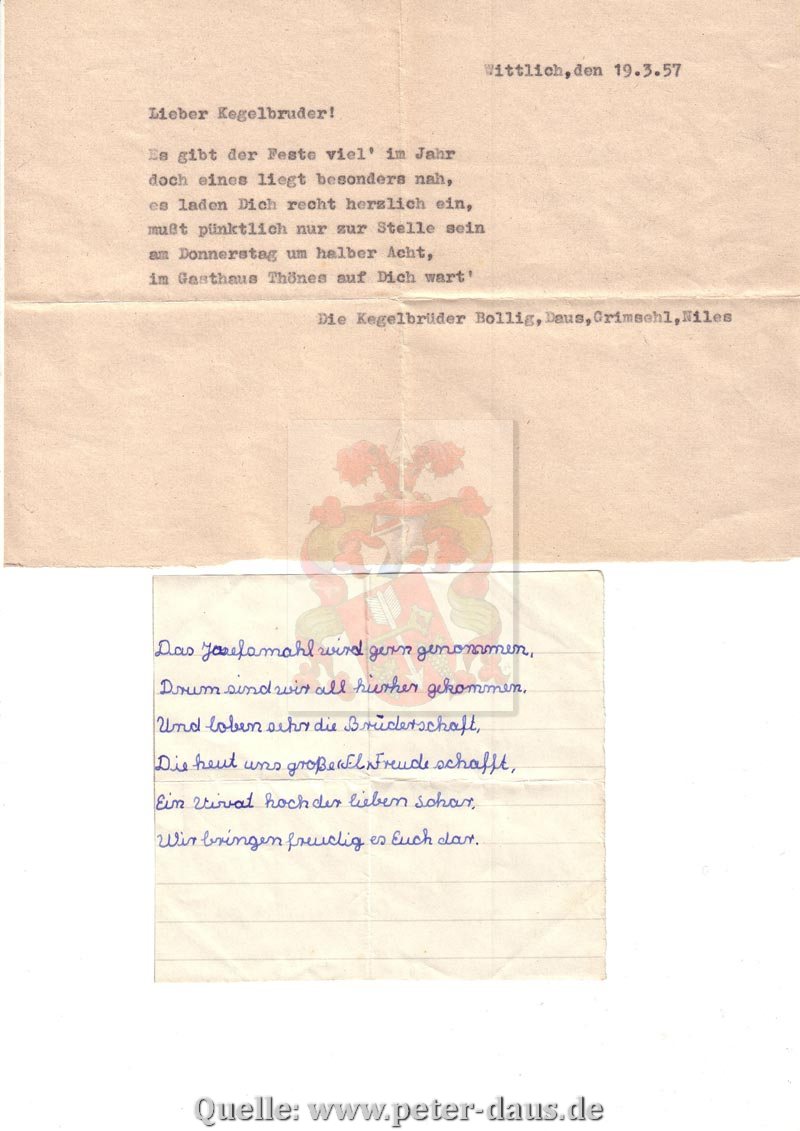 Wittlich,den 19.3.57
Lieber Kegelbruder!
Es gibt der Feste viel' im Jahr
doch eines liegt besonders nah,
es laden Dich recht herzlich ein,
mußt pünktlich nur zur Stelle sein
am Donnerstag um halber Acht,
im Gasthaus Thönes auf Dich wart'
Die Kegelbrüder Bollig,Daus,Grimsehl,Niles
Das Josefsmahl wird gern genommen,
Drum sind wir all hierher gekommen.
Und loben sehr die Brüderschaft,
Die heut uns große Freude schafft,
Ein Vivat hoch der lieben Schar,
Wir bringen freudig es Euch dar.
Quelle: www.peter-daus.de